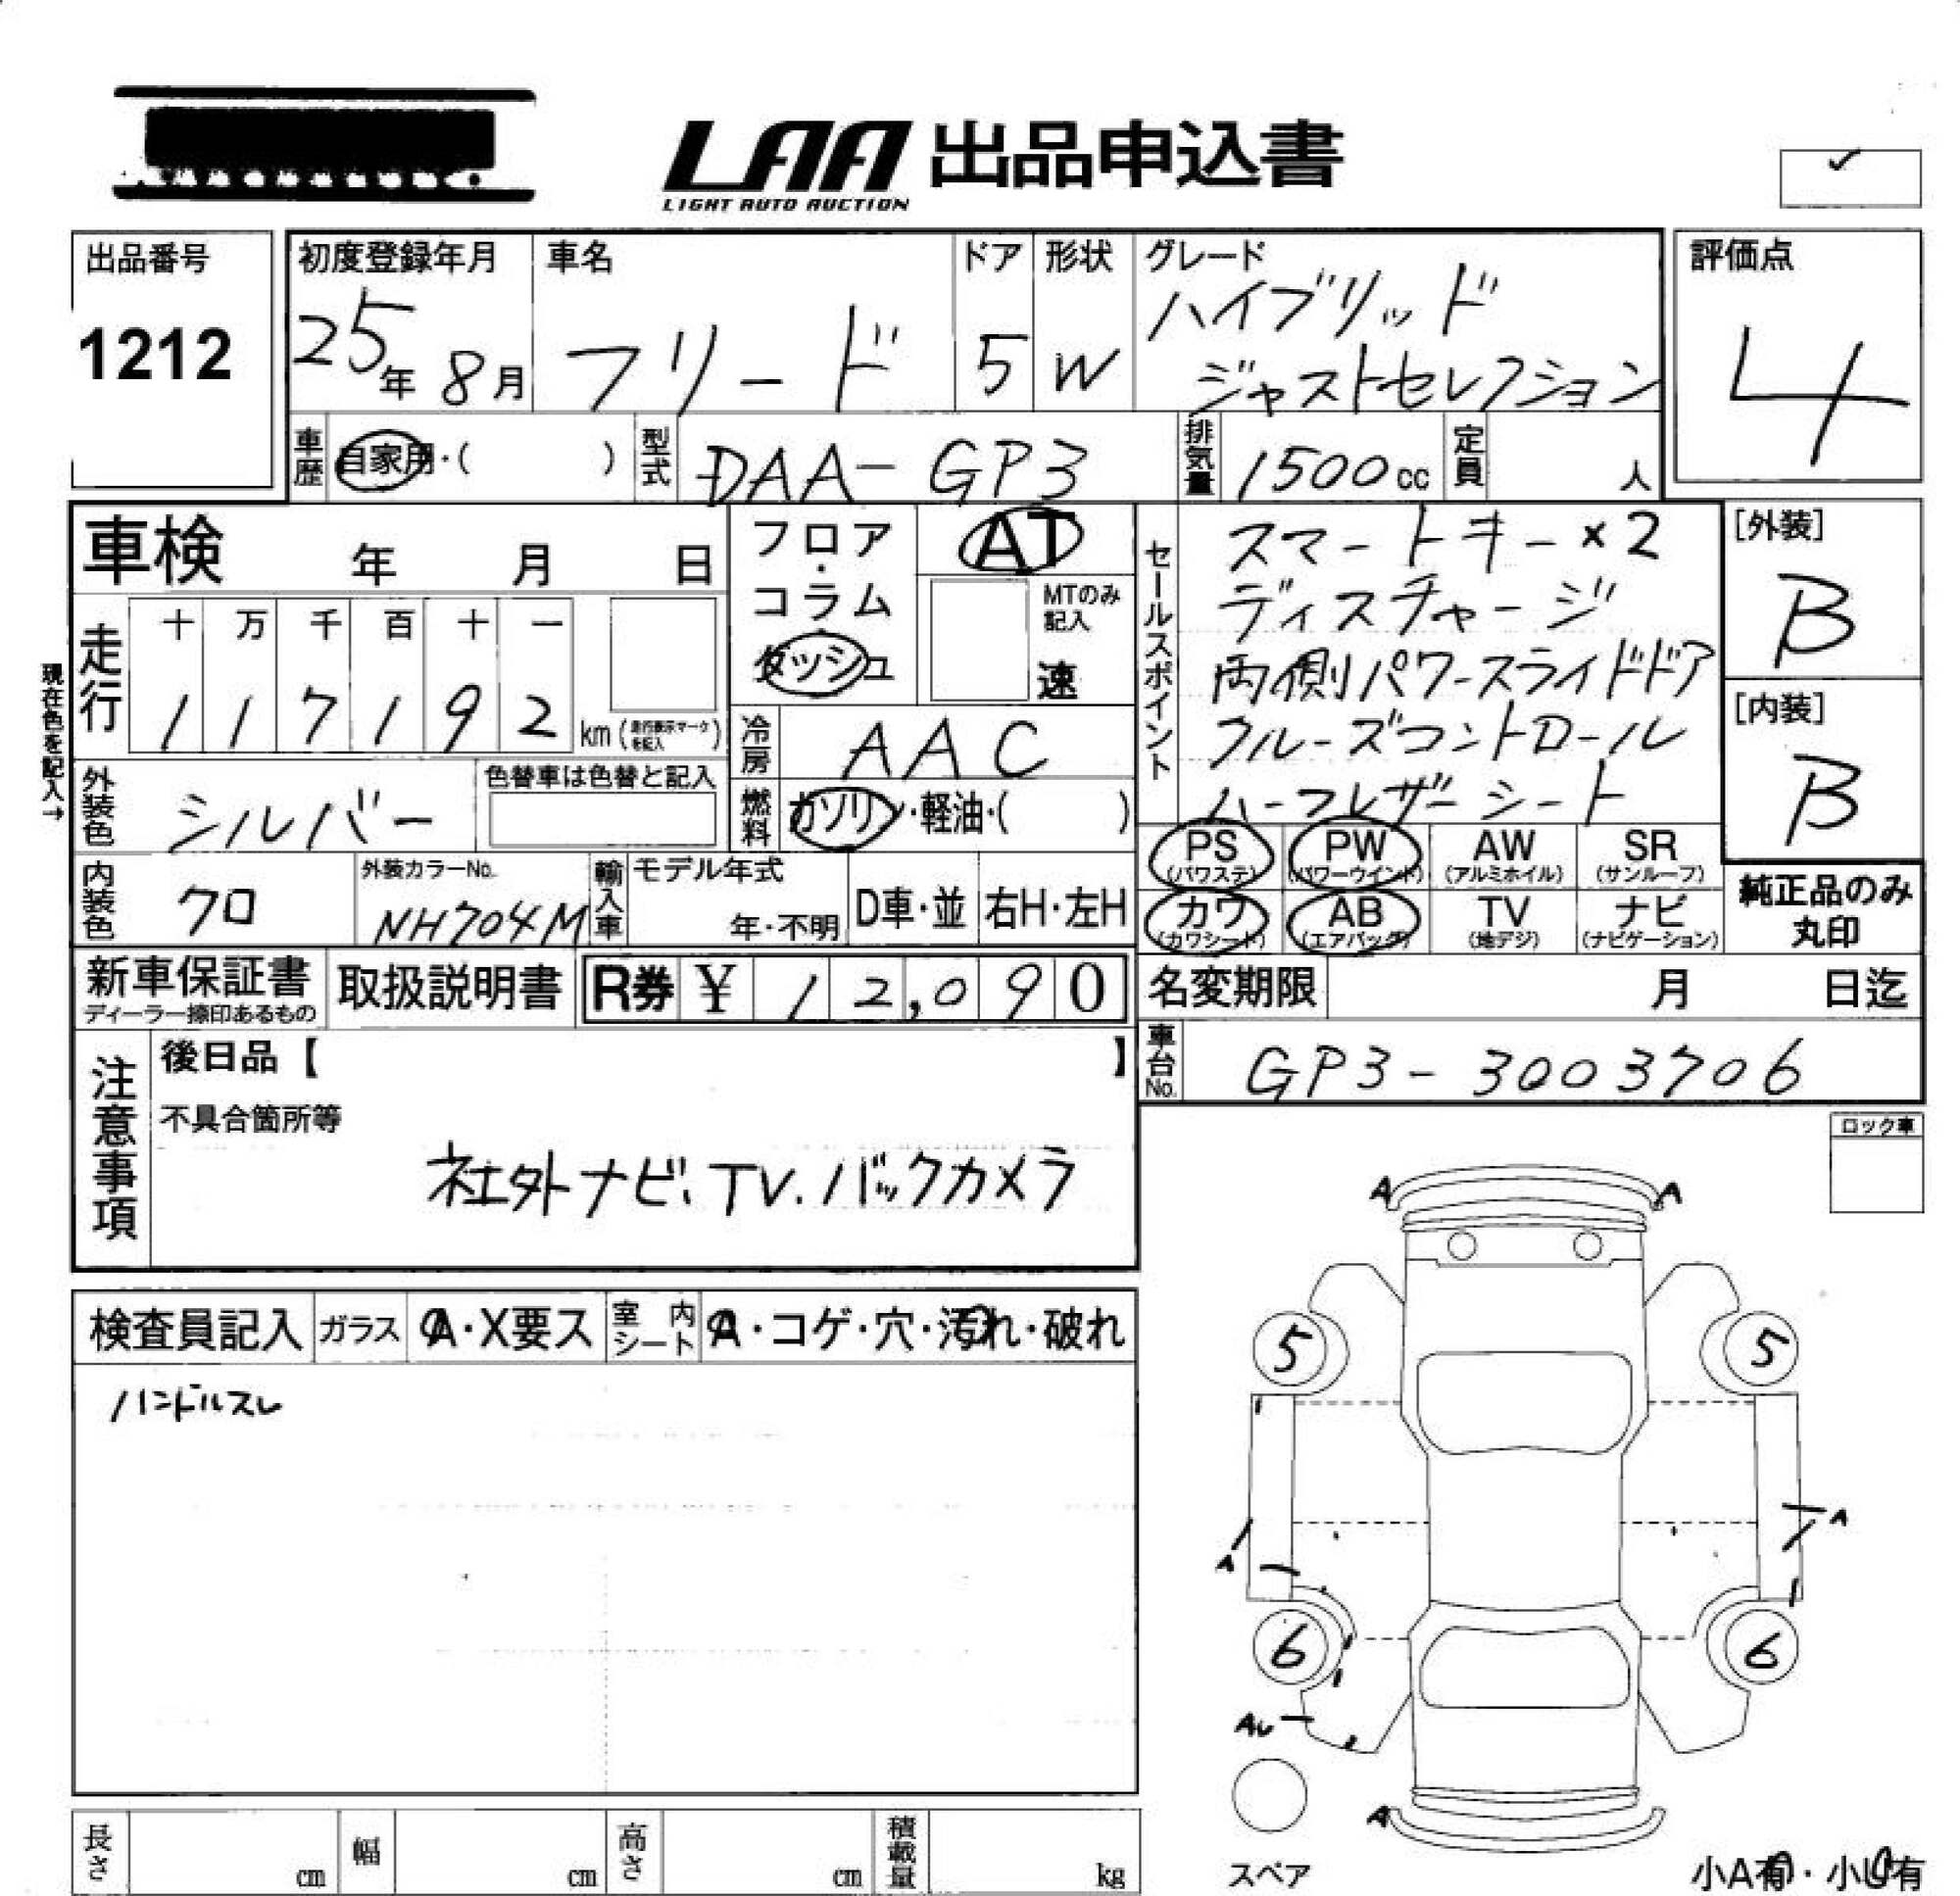 LAA 出品申込書
LIGHT AUTO AUCTION
出品番号
1212
初度登録年月
25年 8月
車名
フリード
ドア
5
形状
W
グレード
ハイブリッド
ジャストセレクション
評価点
4
車歴
自家用・( )
型式
DAA-GP3
排気量
1500cc
定員
人
車検 年 月 日
現在色を記入→
走行
十 万 千 百 十 一
1 1 7 1 9 2 km (走行表示マークを記入)
フロア
・
コラム
・
ダッシュ
AT
MTのみ
記入
速
冷房
AAC
燃料
ガソリン・軽油・( )
セールスポイント
スマートキー×2
ディスチャージ
両側パワースライドドア
クルーズコントロール
ハーフレザーシート
[外装]
B
[内装]
B
外装色
シルバー
色替車は色替と記入
内装色
クロ
外装カラーNo.
NH704M
輸入車
モデル年式
年・不明
D車・並
右H・左H
PS
(パワステ)
PW
(パワーウインド)
AW
(アルミホイル)
SR
(サンルーフ)
カワ
(カワシート)
AB
(エアバッグ)
TV
(地デジ)
ナビ
(ナビゲーション)
純正品のみ
丸印
新車保証書
ディーラー捺印あるもの
取扱説明書
R券 ¥ 12,090
名変期限 月 日迄
車台No.
GP3-3003706
注意事項
後日品【 】
不具合箇所等
社外ナビ、TV、バックカメラ
ロック車
検査員記入
ガラス
A・X要ス
室内シート
A・コゲ・穴・汚れ・破れ
ハンドルスレ
A A
5 5
A
A
6 6
AU
A
スペア
小A有・小U有
長さ cm
幅 cm
高さ cm
積載量 kg